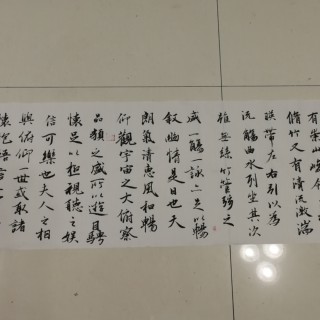 有崇山峻
脩竹又有清流激湍
映帶左右引以為
流觴曲水列坐其次
雖無絲竹管弦之
盛一觴一詠亦足以暢
叙幽情是日也天
朗氣清惠風和暢
仰觀宇宙之大俯察
品類之盛所以遊目騁
懷足以極視聽之娱
信可樂也夫人之相
與俯仰一世或取諸
懷抱悟言